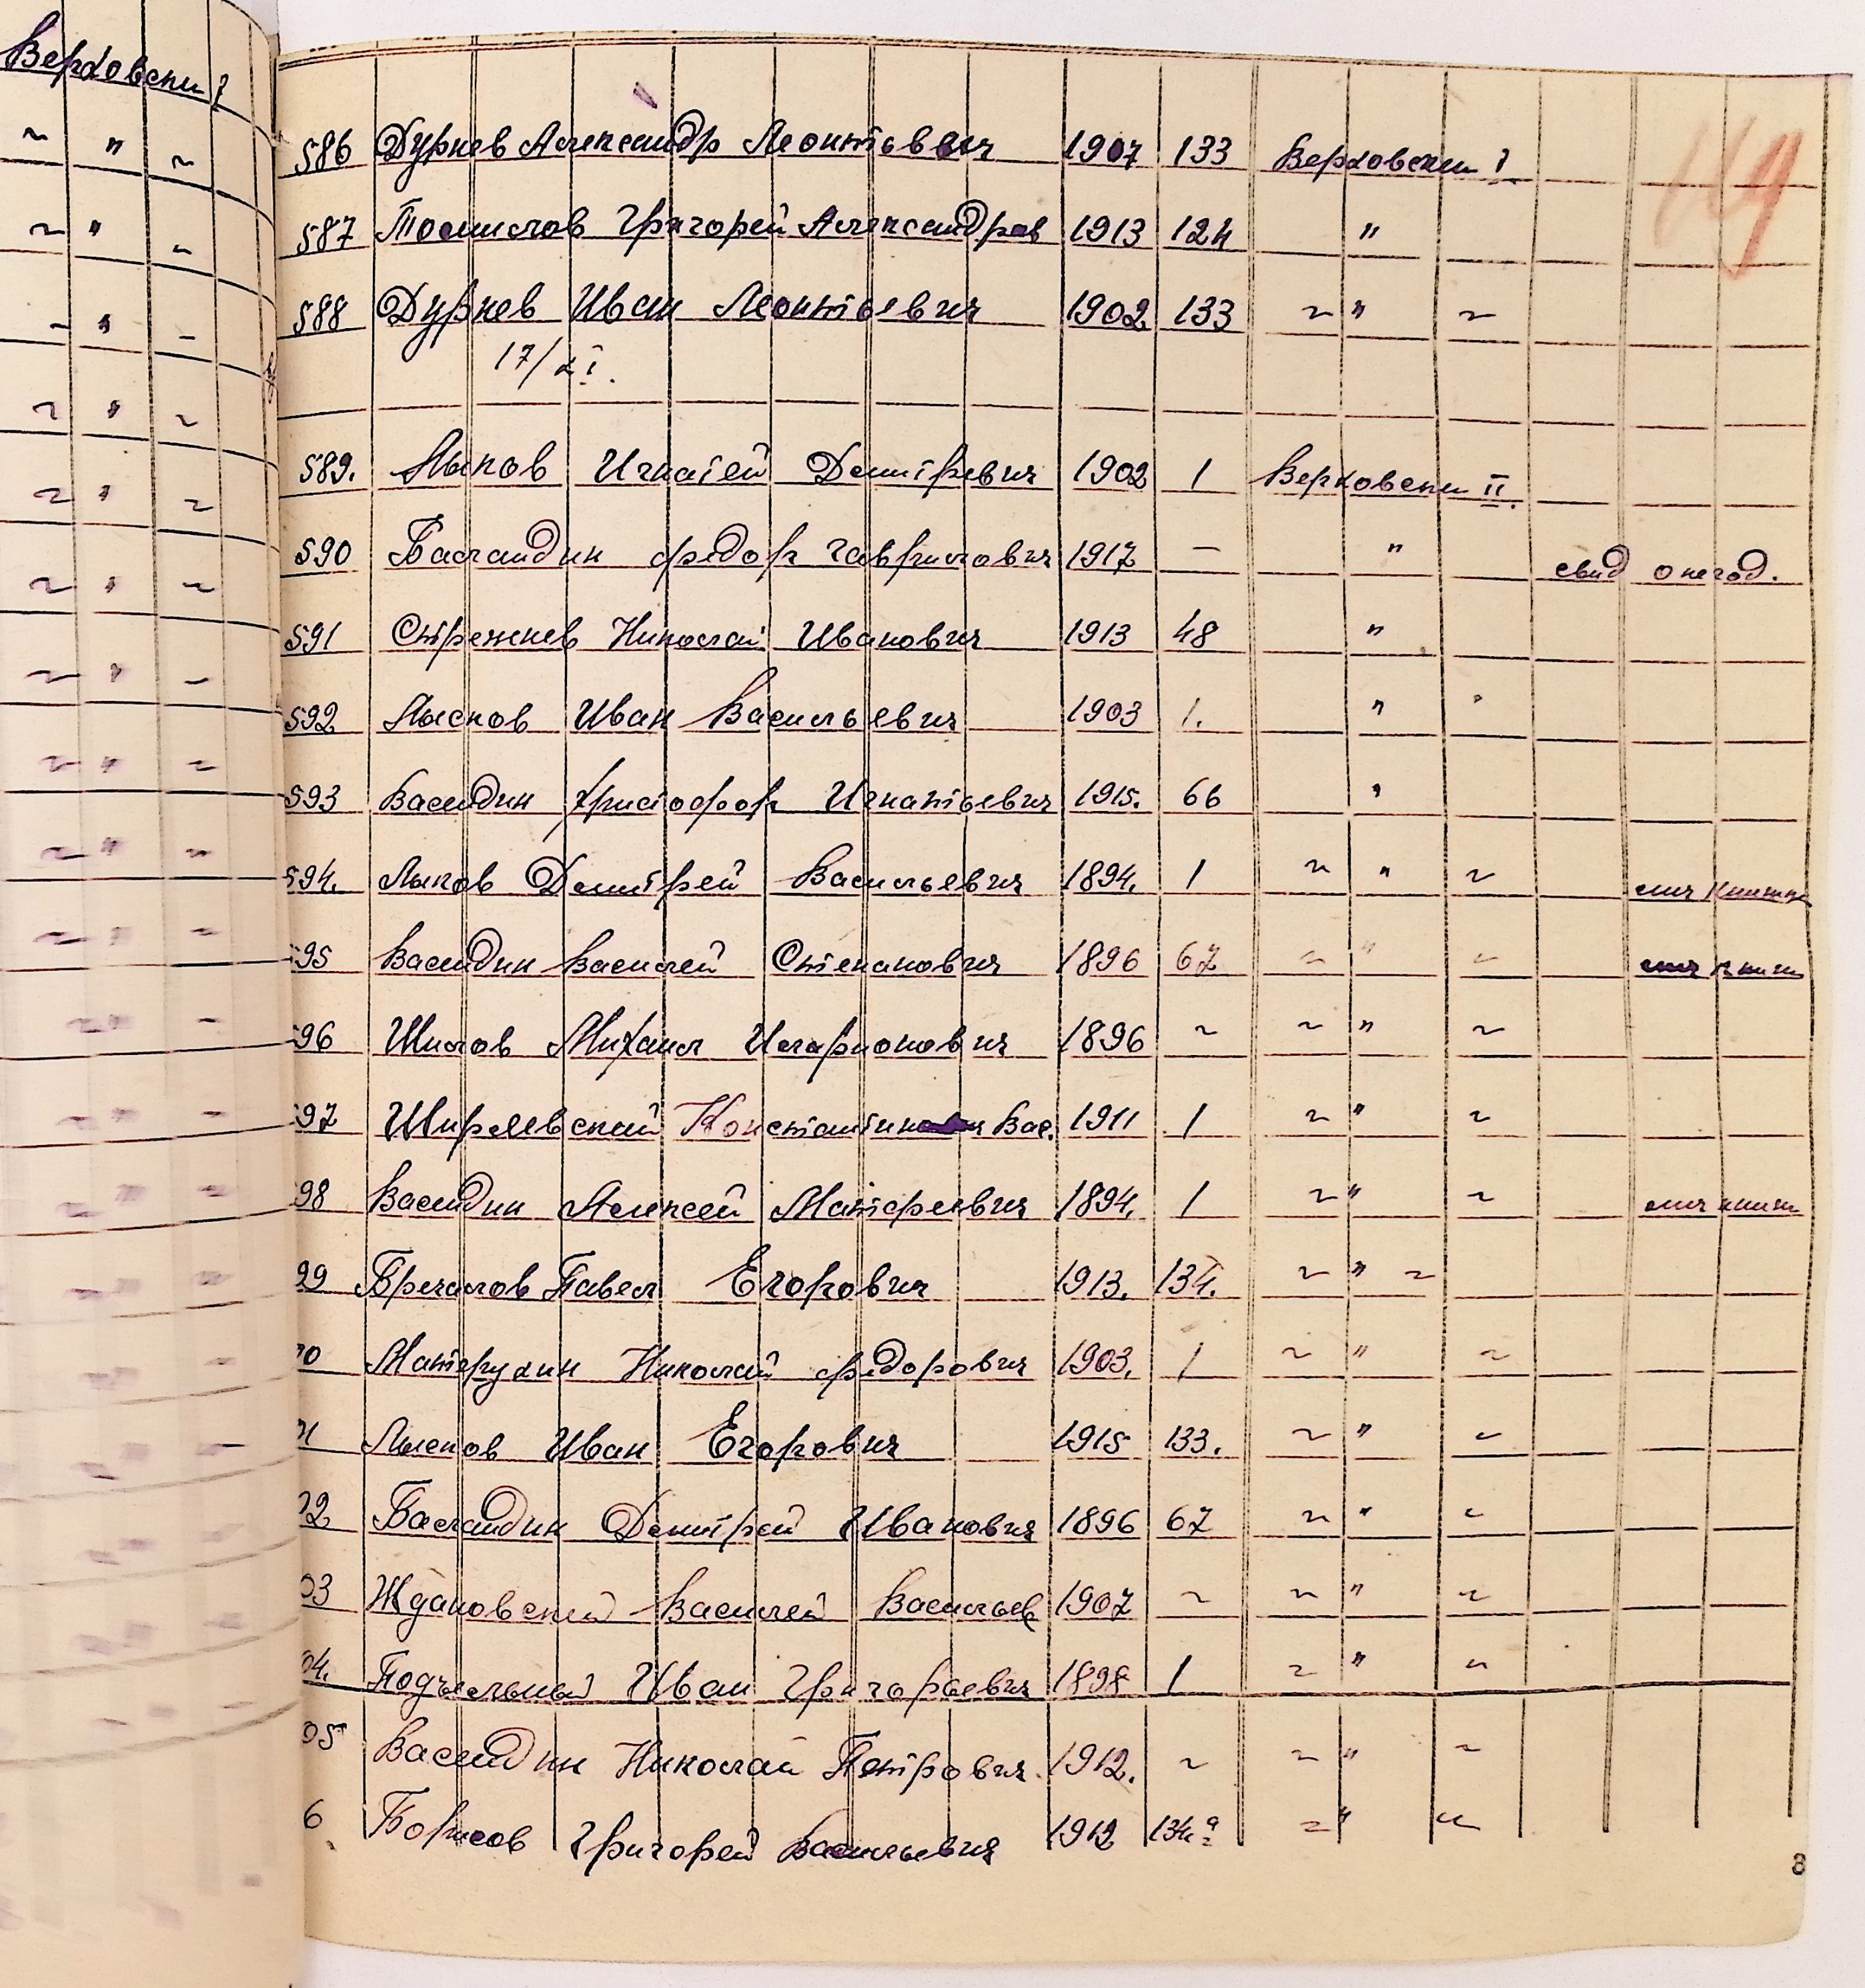 Верховски I
119
586 Дурнев Александр Леонтьевич 1907 133 Верховски I
587 Томилов Григорей Александров 1913 124 "
588 Дурнев Иван Леонтьевич 1902 133 ~ " ~
17/XI.
589. Лыков Игнатей Дмитревич 1902 1 Верховски II.
590 Баландин Федор Гаврилович 1917 — " свид о негод.
591 Стрежнев Николай Иванович 1913 48 "
592 Лысков Иван Васильевич 1903 1. "
593 Васидин Христофор Игнатьевич 1915. 66 "
594. Лыков Дмитрей Васильевич 1894. 1 ~ " ~
595 Васидин Василей Степанович 1896 67 ~ " ~
596 Шилов Михаил Иларионович 1896 ~ ~ " ~
597 Ширяевский Константин Вас. 1911 1 ~ " ~
98 Васидин Алексей Матфеевич 1894. 1 ~ " ~
99 Брегалов Павел Егорович 1913. 134. ~ " ~
00 Матерухин Николай Федорович 1903. 1 ~ " ~
01 Лысков Иван Егорович 1915 133. ~ " ~
02 Баландин Дмитрей Иванович 1896 67 ~ " ~
03 Ждановский Василей Васильев 1907 ~ ~ " ~
04. Подъельный Иван Григорьевич 1898 1 ~ " ~
05 Васидин Николай Петрович. 1912. ~ ~ " ~
6. Борисов Григорей Васильевич 1912 134 ~ " ~
8